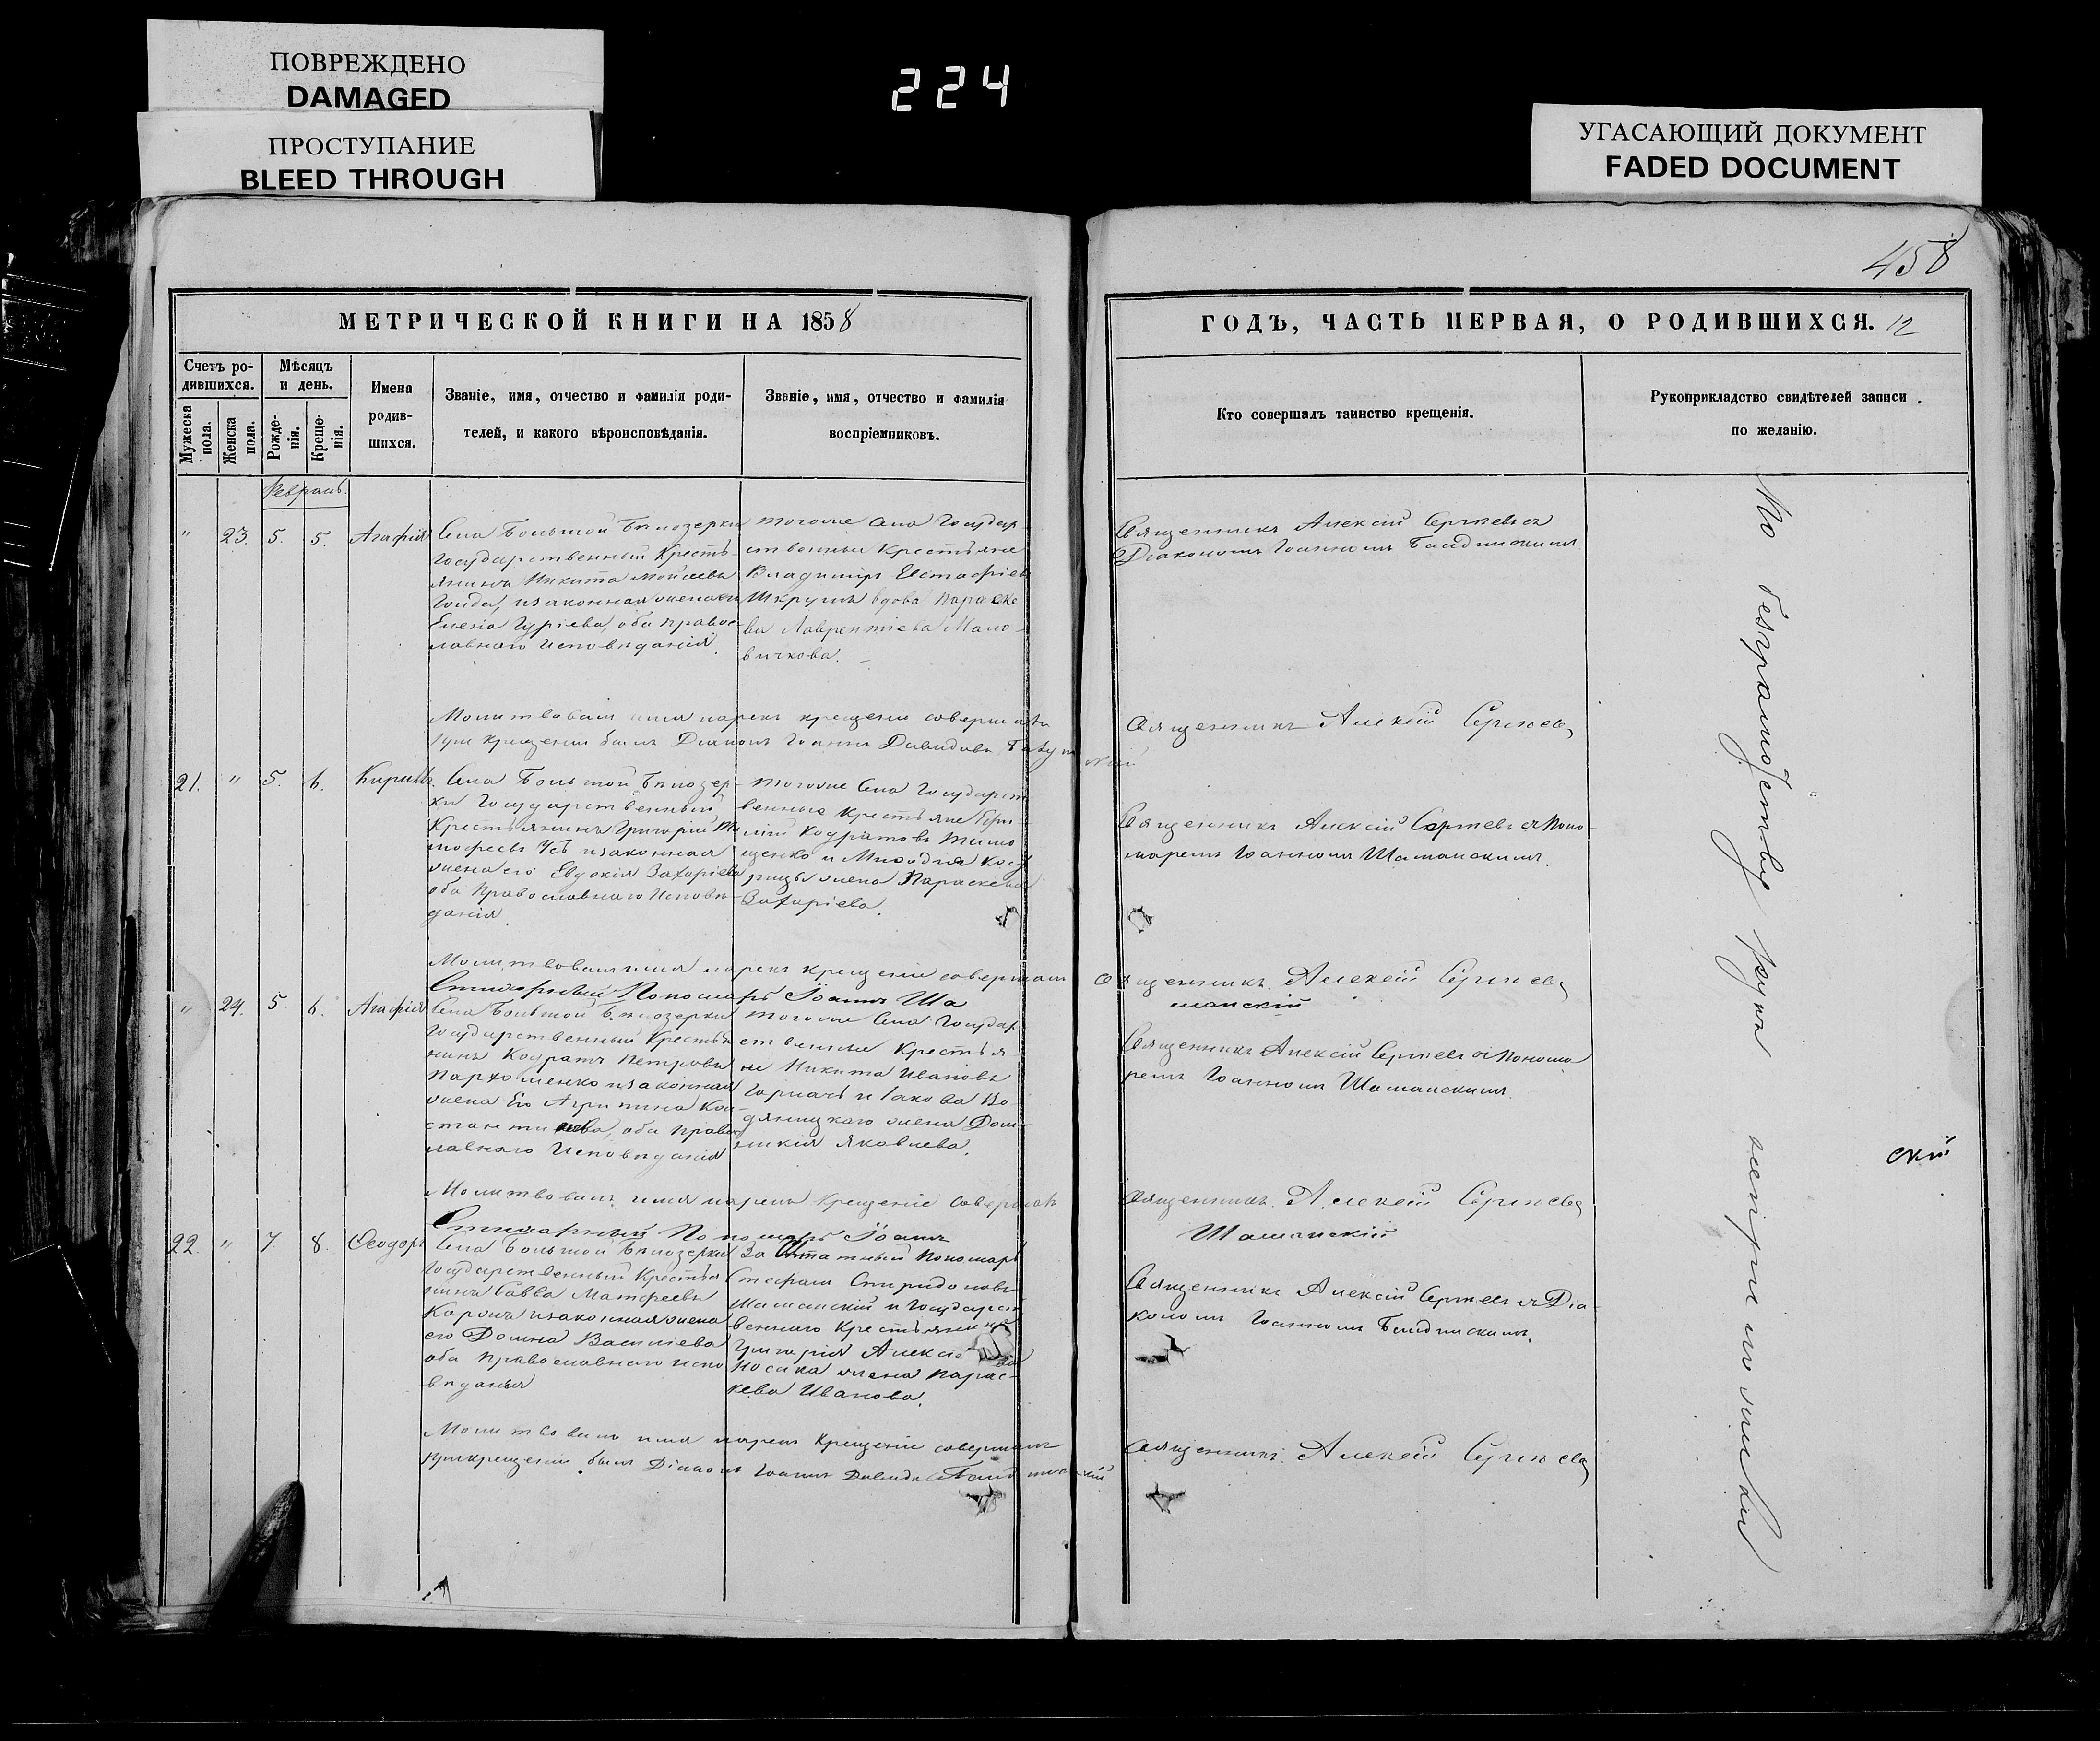 ПОВРЕЖДЕНО
DAMAGED
ПРОСТУПАНИЕ
BLEED THROUGH
224
УГАСАЮЩИЙ ДОКУМЕНТ
FADED DOCUMENT
458
МЕТРИЧЕСКОЙ КНИГИ НА 1858
Счетъ ро-
дившихся.
Мужеска
пола.
Женска
пола.
Мѣсяцъ
и день.
Рожде-
нія.
Креще-
нія.
Имена
родив-
шихся.
Званіе, имя, отчество и фамилія роди-
телей, и какого вѣроисповѣданія.
Званіе, имя, отчество и фамилія
воспріемниковъ.
ГОДЪ, ЧАСТЬ ПЕРВАЯ, О РОДИВШИХСЯ. 12
Кто совершалъ таинство крещенія.
Рукоприкладство свидѣтелей записи
по желанію.
Февраль.
" 23. 5. 5. Агафія
Села Большой Бѣлозерки
Государственный Кресть-
янинъ Никита Моѵсеевъ
Гонда, и законная жена его
Гуріева, оба правос-
лавнаго Исповѣданія.
тогоже Села Государ-
ственные Крестьяне
Владиміръ Евстафіевъ
вдова Параске
ва Лаврентіева Мало-
вичкова.
Священникъ Алексій Сергѣевъ съ
Діакономъ Іоанномъ
Молитвовалъ имя нарекъ крещеніе совершалъ
При крещеніи былъ Діаконъ Іоаннъ Давидовъ
Священникъ Алексій Сергѣевъ
21. " 5. 6. Кириллъ
Села Большой Бѣлозер-
ки Государственный
Крестьянинъ Григорій Ти
мофеевъ Усъ и законная
жена его Евдокія Захаріева
оба Православнаго Исповѣ-
данія.
тогоже Села Государст
венные Крестьяне
Кодратовъ Тимо
щенко и
жена Параскева
Захаріева.
Священникъ Алексій Сергѣевъ съ Поно-
маремъ Іоанномъ Шаманскимъ.
Молитвовалъ имя нарекъ крещеніе совершалъ
Священникъ Алексій Сергѣевъ
Стихарный Пономарь Іоаннъ Ша
манскій
" 24. 5. 6. Агафія
Села Большой Бѣлозерки
Государственный Крестья
нинъ Кодратъ Петровъ
Пархоменко и законная
жена Его Агрипина Кон-
стантинова, оба Правос
лавнаго Исповѣданія
тогоже Села Государ
ственные Крестья
не Никита Ивановъ
и Іакова Во
дяницкаго жена Дом-
никія Яковлева.
Священникъ Алексій Сергѣевъ съ Понома
ремъ Іоанномъ Шаманскимъ.
Молитвовалъ имя нарекъ Крещеніе Совершалъ
Священникъ Алексій Сергѣевъ
Стихарный Пономарь Іоаннъ
Шаманскій
22. " 7. 8. Ѳеодоръ
Села Большой Бѣлозерки
Государственный Крестья
нинъ Савва Матфеевъ
и законная жена
его Домна Василіева
оба Православнаго испо
вѣданія
За Штатный Пономарь
Стефанъ Спиридоновъ
Шаманскій и Государст
веннаго Крестьянина
Григорія Алексіева
Носика жена Парас-
кева Иванова.
Священникъ Алексій Сергѣевъ съ Діа-
кономъ Іоанномъ
Молитвовалъ имя нарекъ Крещеніе совершалъ
При крещеніи былъ Діаконъ Іоаннъ Давидовъ
Священникъ Алексій Сергѣевъ
По безграмотству
скій